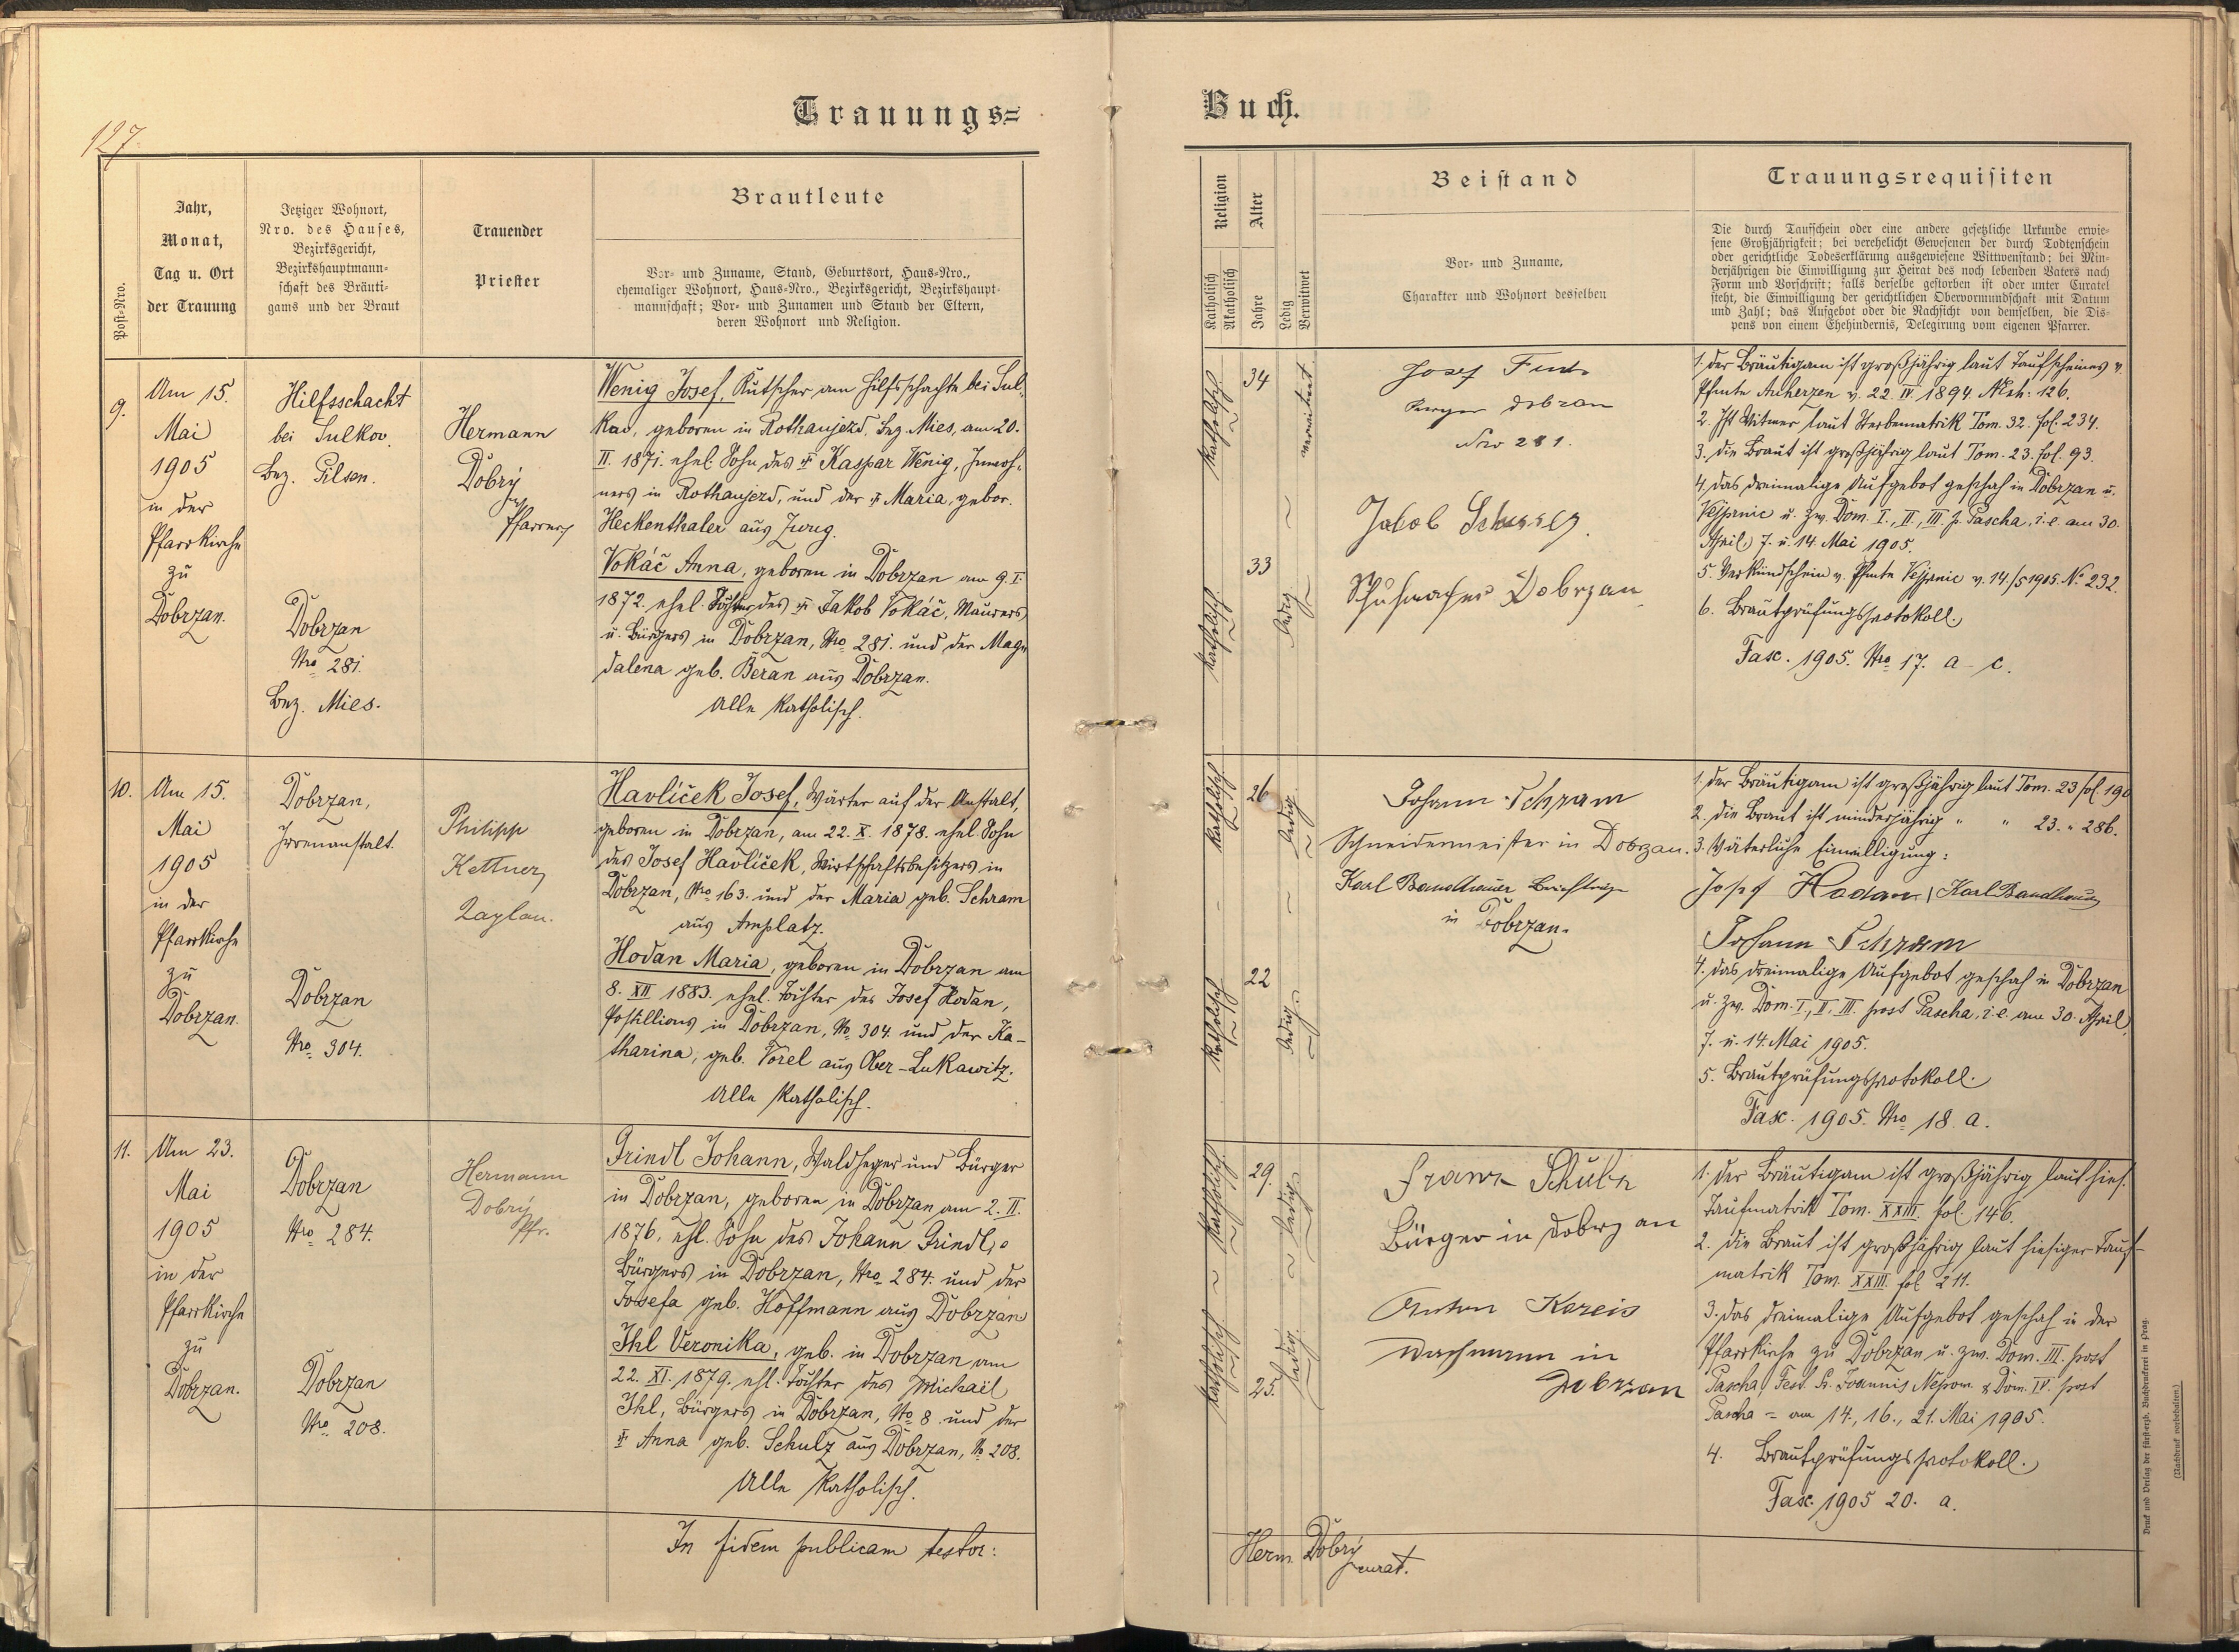 127.
Trauungs=
Post=Nro.
Jahr,
Monat,
Tag u. Ort
der Trauung
Jetziger Wohnort,
Nro. des Hauses,
Bezirksgericht,
Bezirkshauptmann=
schaft des Bräuti=
gams und der Braut
Trauender
Priester
Brautleute
Vor= und Zuname, Stand, Geburtsort, Haus=Nro.,
ehemaliger Wohnort, Haus=Nro., Bezirksgericht, Bezirkshaupt=
mannschaft; Vor= und Zunamen und Stand der Eltern,
deren Wohnort und Religion.
9.
Am 15.
Mai
1905
in der
Pfarrkirche
zu
Dobrzan.
Hilfsschacht
bei Sulkov.
Bez. Pilsen.
Dobrzan
Nro 281.
Bez. Mies.
Hermann
Dobrý
Pfarrer
Wenig Josef, Kutscher am Hilfsschachte bei Sul-
kov, geboren in Rothaujezd, Bez. Mies, am 20.
II. 1871. ehel. Sohn des † Kaspar Wenig, Inwoh-
ners in Rothaujezd, und der † Maria, gebor.
Heckenthaler aus Zwug.
Vokáč Anna, geboren in Dobrzan am 9. I.
1872. ehel. Tochter des † Jakob Vokáč, Maurers
u. Bürgers in Dobrzan, Nro 281. und der Mag-
dalena geb. Beran aus Dobrzan.
Alle katholisch.
10.
Am 15.
Mai
1905
in der
Pfarrkirche
zu
Dobrzan.
Dobrzan,
Irrenanstalt.
Dobrzan
Nro 304.
Philipp
Kettner
Kaplan.
Havlíček Josef, Wärter auf der Anstalt,
geboren in Dobrzan, am 22. X. 1878. ehel. Sohn
des Josef Havlíček, Wirtschaftsbesitzers in
Dobrzan, Nro 163. und der Maria geb. Schram
aus Amplatz.
Hodan Maria, geboren in Dobrzan am
8. XII 1883. ehel. Tochter des Josef Hodan,
Postillions in Dobrzan, No 304. und der Ka-
tharina, geb. Vorel aus Ober-Lukawitz.
Alle katholisch.
11.
Am 23.
Mai
1905
in der
Pfarrkirche
zu
Dobrzan.
Dobrzan
Nro 284.
Dobrzan
Nro 208.
Hermann
Dobrý
Pfr.
Grindl Johann, Waldheger und Bürger
in Dobrzan, geboren in Dobrzan am 2. II.
1876. ehl. Sohn des Johann Grindl,
Bürgers in Dobrzan, Nro 284. und der
Josefa geb. Hoffmann aus Dobrzan
Ihl Veronika, geb. in Dobrzan am
22. XI. 1879. ehl. Tochter des Michael
Ihl, Bürgers in Dobrzan, No 8. und der
† Anna geb. Schulz aus Dobrzan, No 208.
Alle katholisch.
In fidem publicam testor:
Buch.
Religion
Katholisch
Akatholisch
Alter
Jahre
Ledig
Verwitwet
Beistand
Vor= und Zuname,
Charakter und Wohnort desselben
Trauungsrequisiten
Die durch Taufschein oder eine andere gesetzliche Urkunde erwie=
sene Großjährigkeit; bei verehelicht Gewesenen der durch Todtenschein
oder gerichtliche Todeserklärung ausgewiesene Wittwenstand; bei Min=
derjährigen die Einwilligung zur Heirat des noch lebenden Vaters nach
Form und Vorschrift; falls derselbe gestorben ist oder unter Curatel
steht, die Einwilligung der gerichtlichen Obervormundschaft mit Datum
und Zahl; das Aufgebot oder die Nachsicht von demselben, die Dis=
pens von einem Ehehindernis, Delegirung vom eigenen Pfarrer.
katholisch
34
verwitwet
katholisch
33
ledig
Josef
dobzan
Nro 281.
Jakob
Schuhmacher Dobrzan
1. Der Bräutigam ist großjährig laut Taufscheines v.
Pfmte Auherzen v. 22. IV. 1894. Nexh: 126.
2. Ist Witwer laut Sterbematrik Tom. 32. fol. 234.
3. Die Braut ist großjährig laut Tom. 23. fol. 93.
4. das dreimalige Aufgebot geschah in Dobrzan u.
Vejprnic u. zw. Dom. I., II., III. p. Pascha, i. e. am 30.
April, 7. u. 14. Mai 1905.
5. Verkündschein v. Pfmte Vejprnic v. 14./5 1905. No 232.
6. Brautprüfungsprotokoll.
Fasc. 1905. Nro 17. a - c.
katholisch
26
ledig
katholisch
22
ledig
Johann Schram
Schneidermeister in Dobrzan.
Karl Bandhauer Briefträger
in Dobrzan.
1. Der Bräutigam ist großjährig laut Tom. 23 fol. 190
2. die Braut ist minderjährig " " 23. " 286.
3. Väterliche Einwilligung:
Josef Hodan Karl Bandhauer
Johann Schram
4. das dreimalige Aufgebot geschah in Dobrzan
u. zw. Dom. I., II., III. post Pascha, i. e. am 30. April,
7. u. 14. Mai 1905.
5. Brautprüfungsprotokoll.
Fasc. 1905. Nro 18. a.
katholisch
29.
ledig
katholisch
25.
ledig.
Franz Schulz
Bürger in Dobrzan
Anton Kareis
Wachmann in
Dobrzan
1. Der Bräutigam ist großjährig laut hies.
Taufmatrik Tom. XXIII. fol. 146.
2. die Braut ist großjährig laut hiesiger Tauf-
matrik Tom. XXIII. fol 211.
3. das dreimalige Aufgebot geschah in der
Pfarrkirche zu Dobrzan u. zw. Dom. III. post
Pascha, Fest. S. Joannis Nepom. & Dom. IV. post
Pascha = am 14., 16., 21. Mai 1905.
4. Brautprüfungsprotokoll.
Fasc. 1905 20. a.
Herm. Dobrý
curat.
Druck und Verlag der fürst=erzb. Buchdruckerei in Prag.
(Nachdruck vorbehalten.)